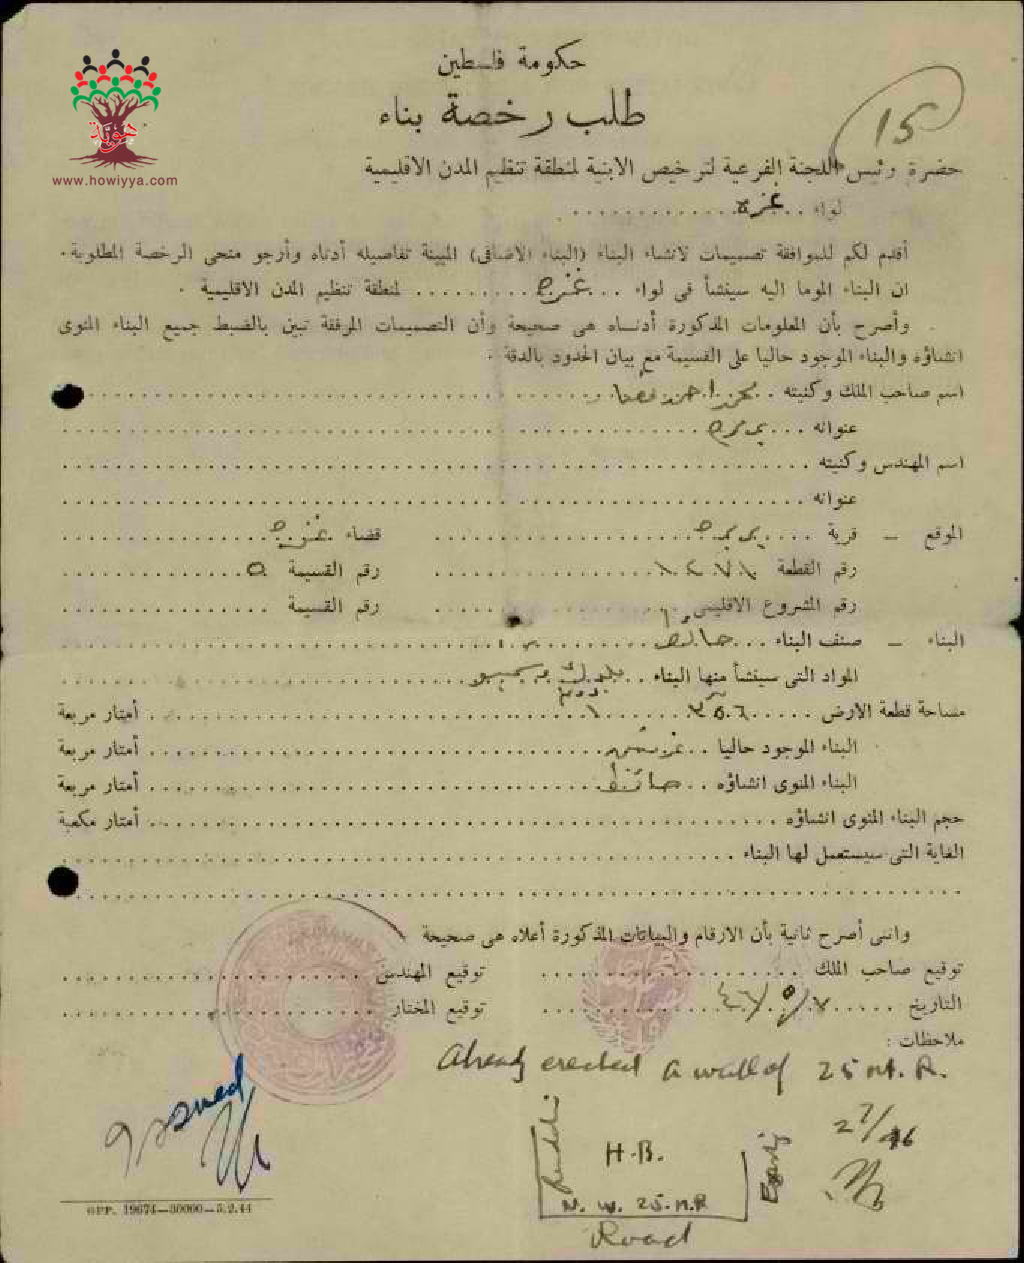 حكومة فلسطين
طلب رخصة بناء
15
هوية
www.howiyya.com
حضرة رئيس اللجنة الفرعية لترخيص الابنية لمنطقة تنظيم المدن الاقليمية
لواء ..غزة..............
أقدم لكم للموافقة تصميمات لانشاء البناء (البناء الاضافى) المبينة تفاصيله أدناه وأرجو منحى الرخصة المطلوبة.
ان البناء الموما اليه سينشأ فى لواء ...غزة......... لمنطقة تنظيم المدن الاقليمية .
وأصرح بأن المعلومات المذكورة أدناه هى صحيحة وأن التصميمات المرفقة تبين بالضبط جميع البناء المنوى
انشاؤه والبناء الموجود حاليا على القسيمة مع بيان الحدود بالدقة .
اسم صاحب الملك وكنيته .. محمد احمد
عنوانه ...
اسم المهندس وكنيته ...
عنوانه ...
الموقع – قرية ... قضاء غزة ...
رقم القطعة ... رقم القسيمة ٥ ...
رقم المشروع الاقليمى ... رقم القسيمة ...
البناء – صنف البناء ...
المواد التى سينشأ منها البناء ...
مساحة قطعة الارض ... أمتار مربعة
البناء الموجود حاليا ... أمتار مربعة
البناء المنوى انشاؤه ... حائط ... أمتار مربعة
حجم البناء المنوى انشاؤه ... أمتار مكعبة
الغاية التى سيستعمل لها البناء ...
وانى أصرح ثانية بأن الارقام والبيانات المذكورة أعلاه هى صحيحة
توقيع صاحب الملك ... توقيع المهندس ...
التاريخ ... ٧/٥/٤٦ ... توقيع المختار ...
ملاحظات :
Already erected a wall of 25 M.R.
27/46
Issued
H.B.
N. W. 25 M.R
Road
GPP. 19674—30000—5.2.44